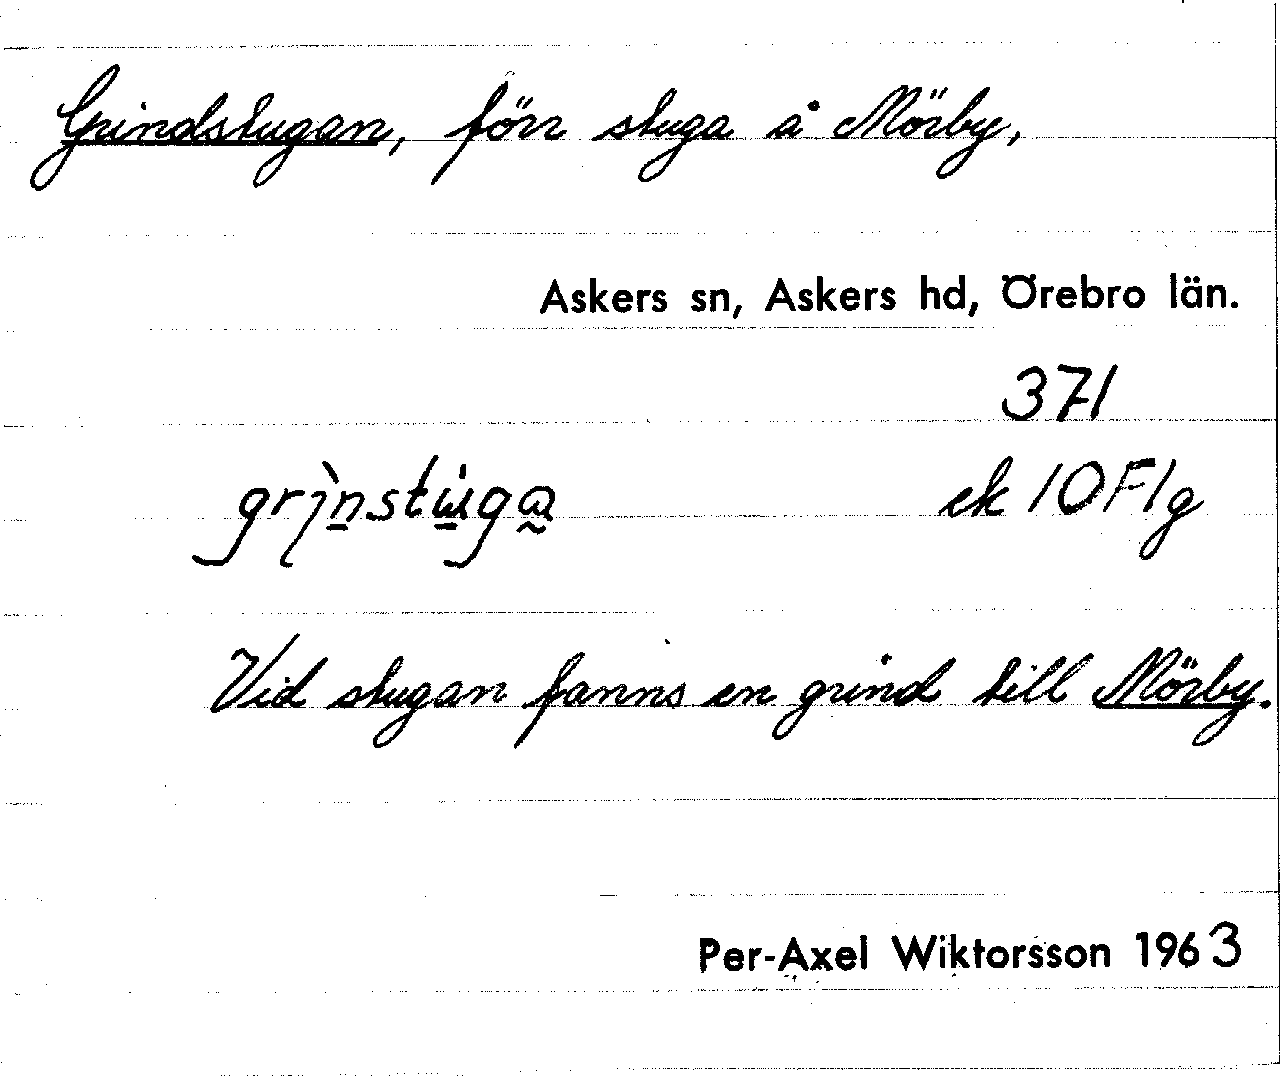 Grindstugan, förr stuga å Mörby,
Askers sn, Askers hd, Örebro län.
371
ek 10F1g
Vid stugan fanns en grind till Mörby.
Per-Axel Wiktorsson 1963